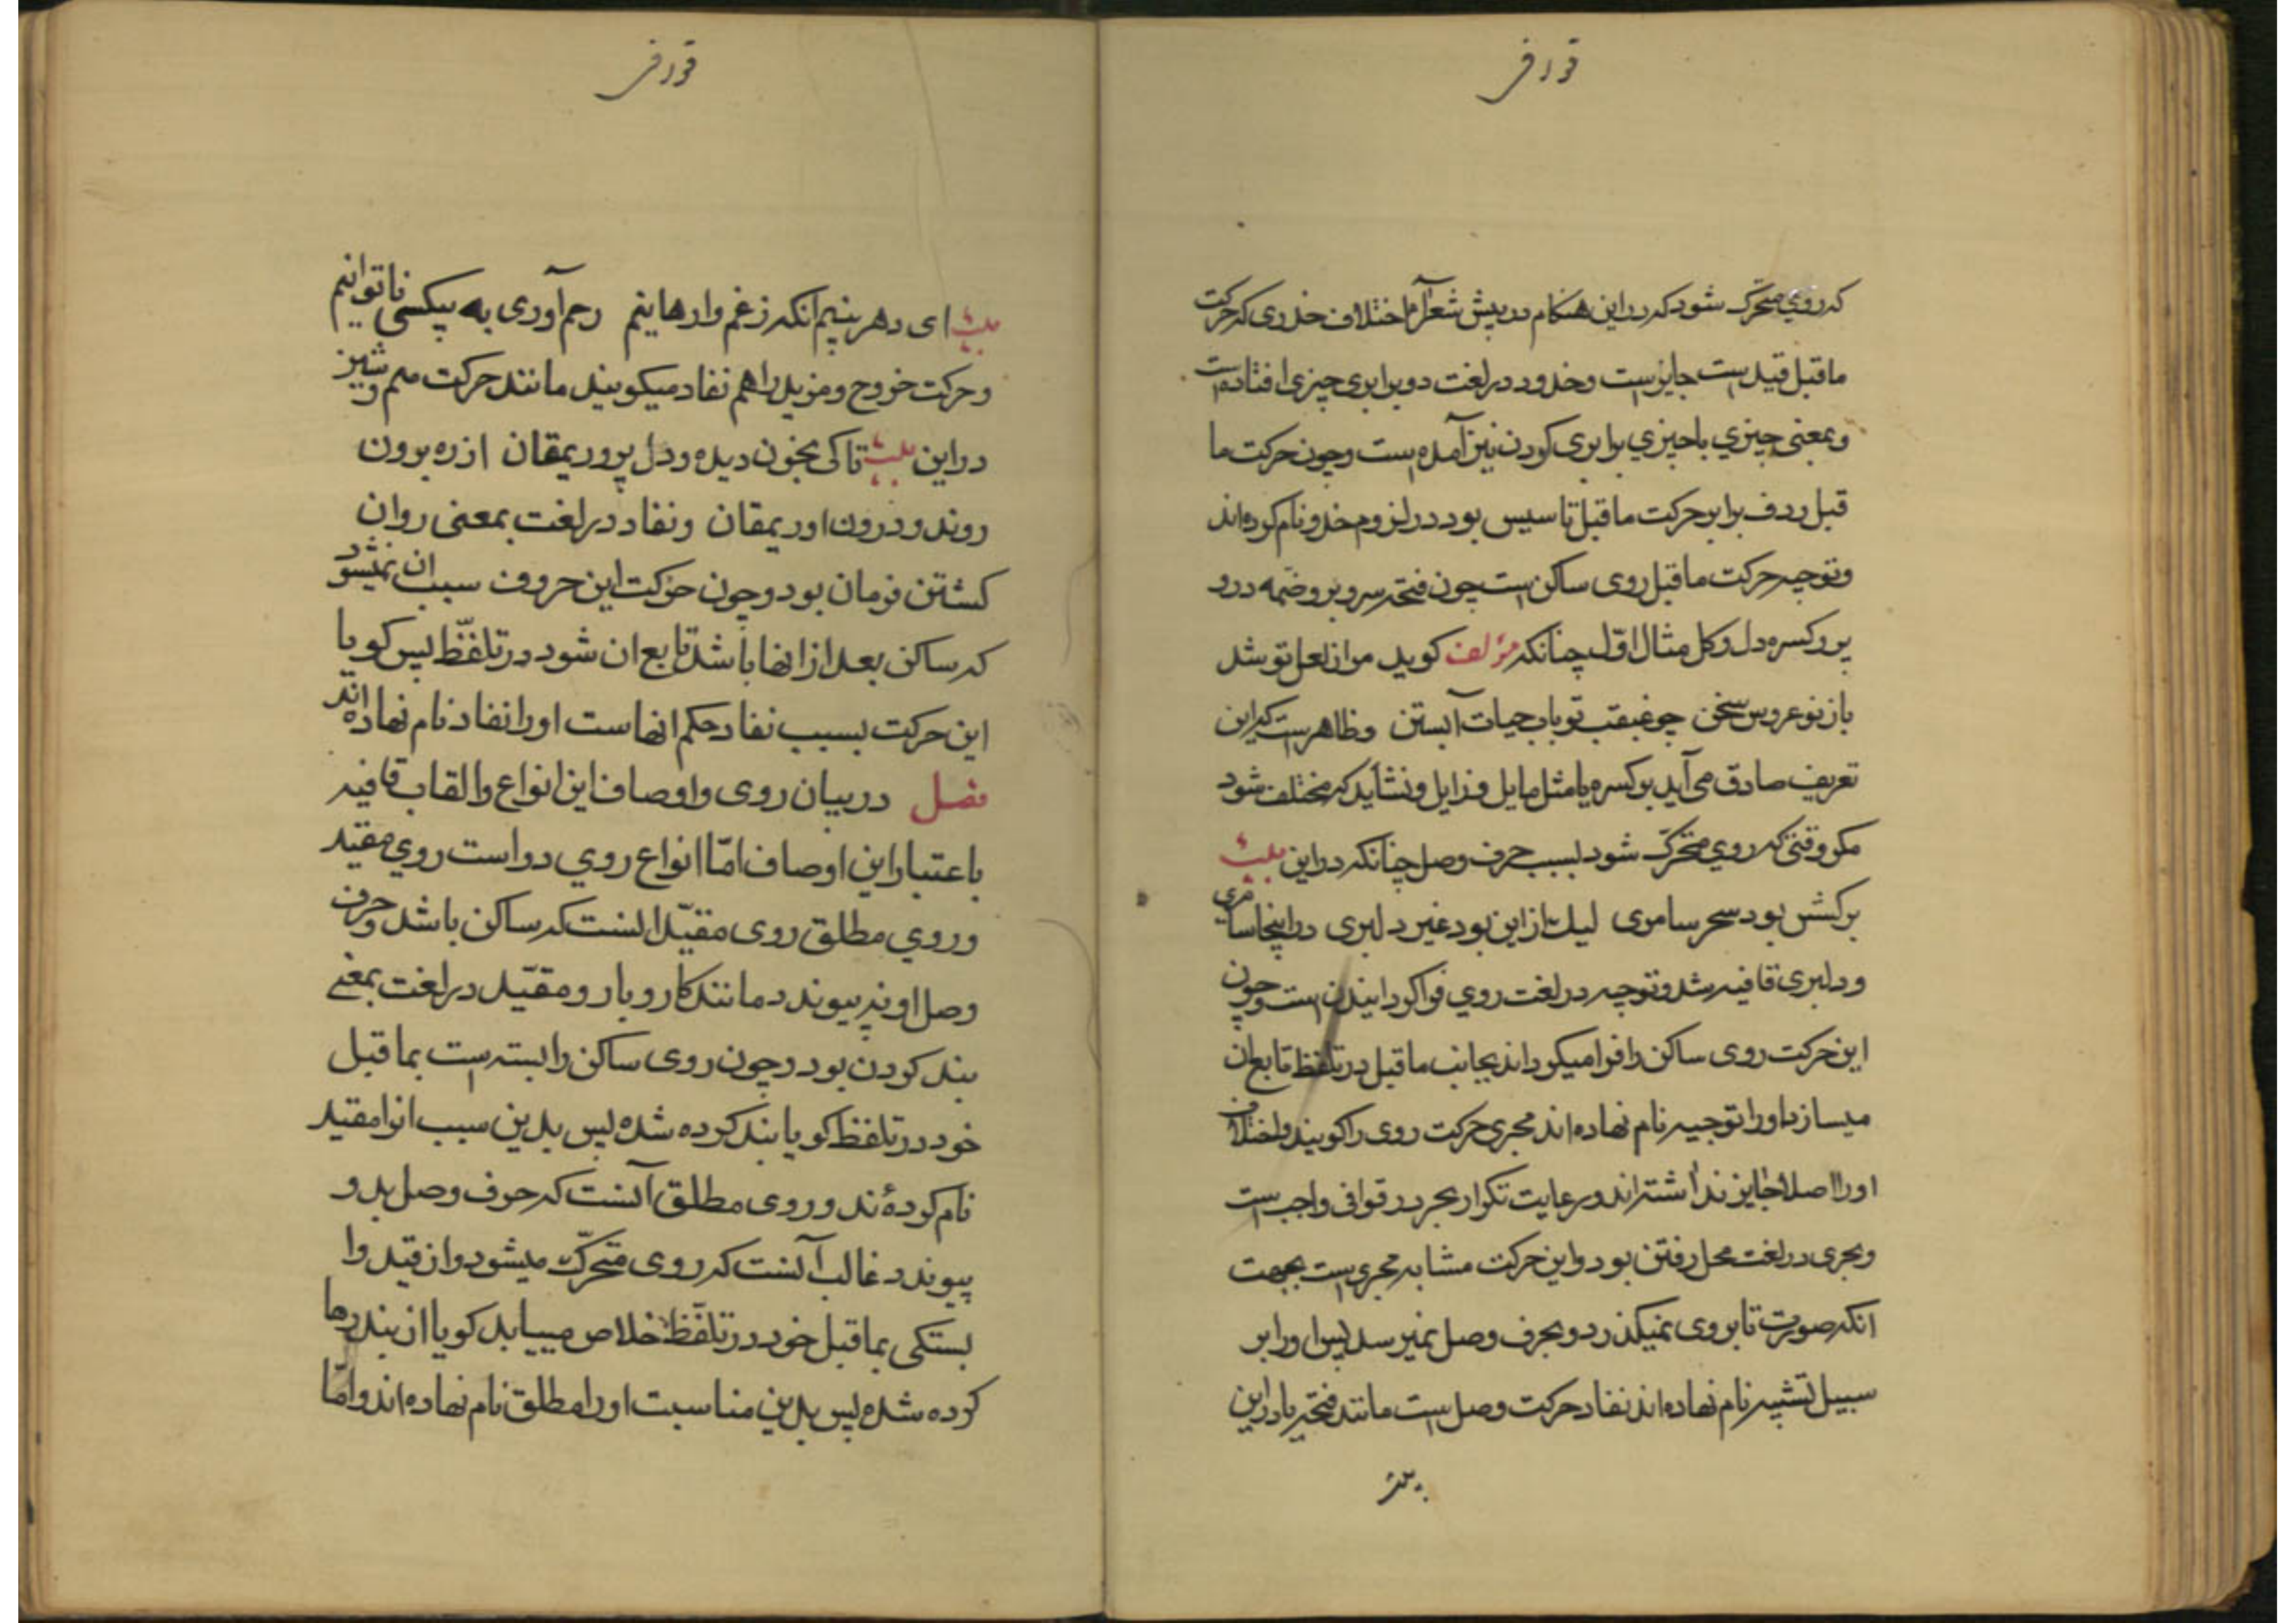 که روی متحرک شود که در این هنکام در پیش شعرا اختلاف حذوی که حرکت
ماقبل قید است جایز است وحذو در لغت دو برابری چیزی افتاده است
و بمعنی چیزی با چیزی برابری کردن نیز آمده است وچون حرکت ما
قبل ردف برابر حرکت ماقبل تاسیس بود در لزوم حذو نام کرده اند
و توجیه حرکت ماقبل روی ساکن است چون فتحه سر و بر وضمه در و
پر و کسره دل و کل مثال اول چنانکه مؤلف کوید مرا ز لعل تو شد
باز نو عروس سخن چو غبغب تو باب حیات آبستن وظاهر است که این
تعریف صادق می آید بر کسره یا مثل مایل و زایل ونشاید که مختلف شود
مکر وقتی که روی متحرک شود بسبب حرف وصل چنانکه در این بیت
برکشش بود سحر سامری لیک از این بود غیر دلبری در اینجا سامری
ودلبری قافیه شد وتوجیه در لغت روی فرا کردانیدن است وچون
این حرکت روی ساکن را فرا میکرداند بجانب ماقبل در تلفظ تابع ان
میسازد او را توجیه نام نهاده اند مجری حرکت روی را کویند واختلاف
او را اصلا جایز نداشته اند ورعایت تکرار مجر در قوافی واجب است
ومجری در لغت محل رفتن بود واین حرکت مشابه مجری است بجهت
انکه صوت تا بروی نمیکذرد وبحرف وصل نمیرسد پس او را بر
سبیل تشبیه نام نهاده اند نفاد حرکت وصل است مانند فتحه یا در این
بیت
بیت ای دهر بینیم انکه ز غم وارهاینم رحم آوری به بیکسی ناتوانیم
وحرکت خروج ومزید را هم نفاد میکویند مانند حرکت میم وشین
در این بیت تا کی بخون دیده ودل پروریمقان از ره برون
روند و درون اوریمقان ونفاد در لغت بمعنی روان
کشتن فرمان بود وچون حرکت این حروف سبب ان نمیشود
که ساکن بعد از انها باشد تابع ان شود در تلفظ پس کویا
این حرکت بسبب نفاد حکم انهاست او را نفاد نام نهاده اند
فصل در بیان روی واوصاف این انواع والقاب قافیه
باعتبار این اوصاف اما انواع روی دو است روی مقید
وروی مطلق روی مقید انست که ساکن باشد وحرف
وصل او نپیوندد مانند کار وبار ومقید در لغت بمعنی
بند کردن بود وچون روی ساکن را بسته است بماقبل
خود در تلفظ کویا بند کرده شده پس بدین سبب انرا مقید
نام کردۀند وروی مطلق آنست که حرف وصل بدو
پیوندد غالب آنست که روی متحرک میشود واز قید وا
بستکی بماقبل خود در تلفظ خلاص مییابد کویا از بند رها
کرده شده پس بدین مناسبت او را مطلق نام نهاده اند واما